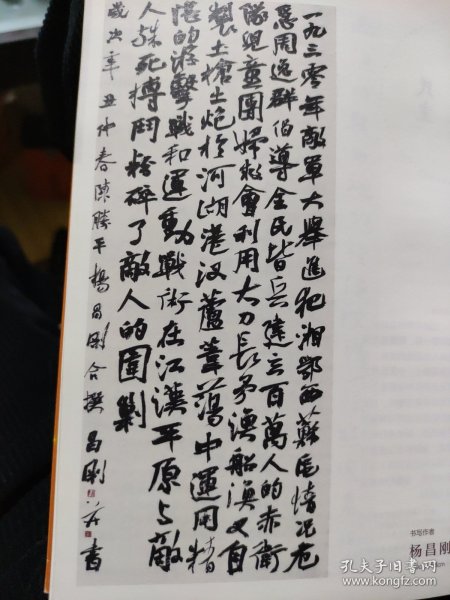 一九三零年敵軍大舉進犯湘鄂西蘇區情況危
急周逸群倡導全民皆兵建立百萬人的赤衛
隊兒童團婦救會利用大刀長矛漁船漁叉自
製土槍土炮於河湖港汊蘆葦蕩中運用精
湛的游擊戰和運動戰術在江漢平原与敵
人殊死搏鬥粉碎了敵人的圍剿
歲次辛丑仲春陳勝平楊昌剛合撰 昌剛並書
书写作者
杨昌刚
孔夫子旧书网
www.kongfz.com